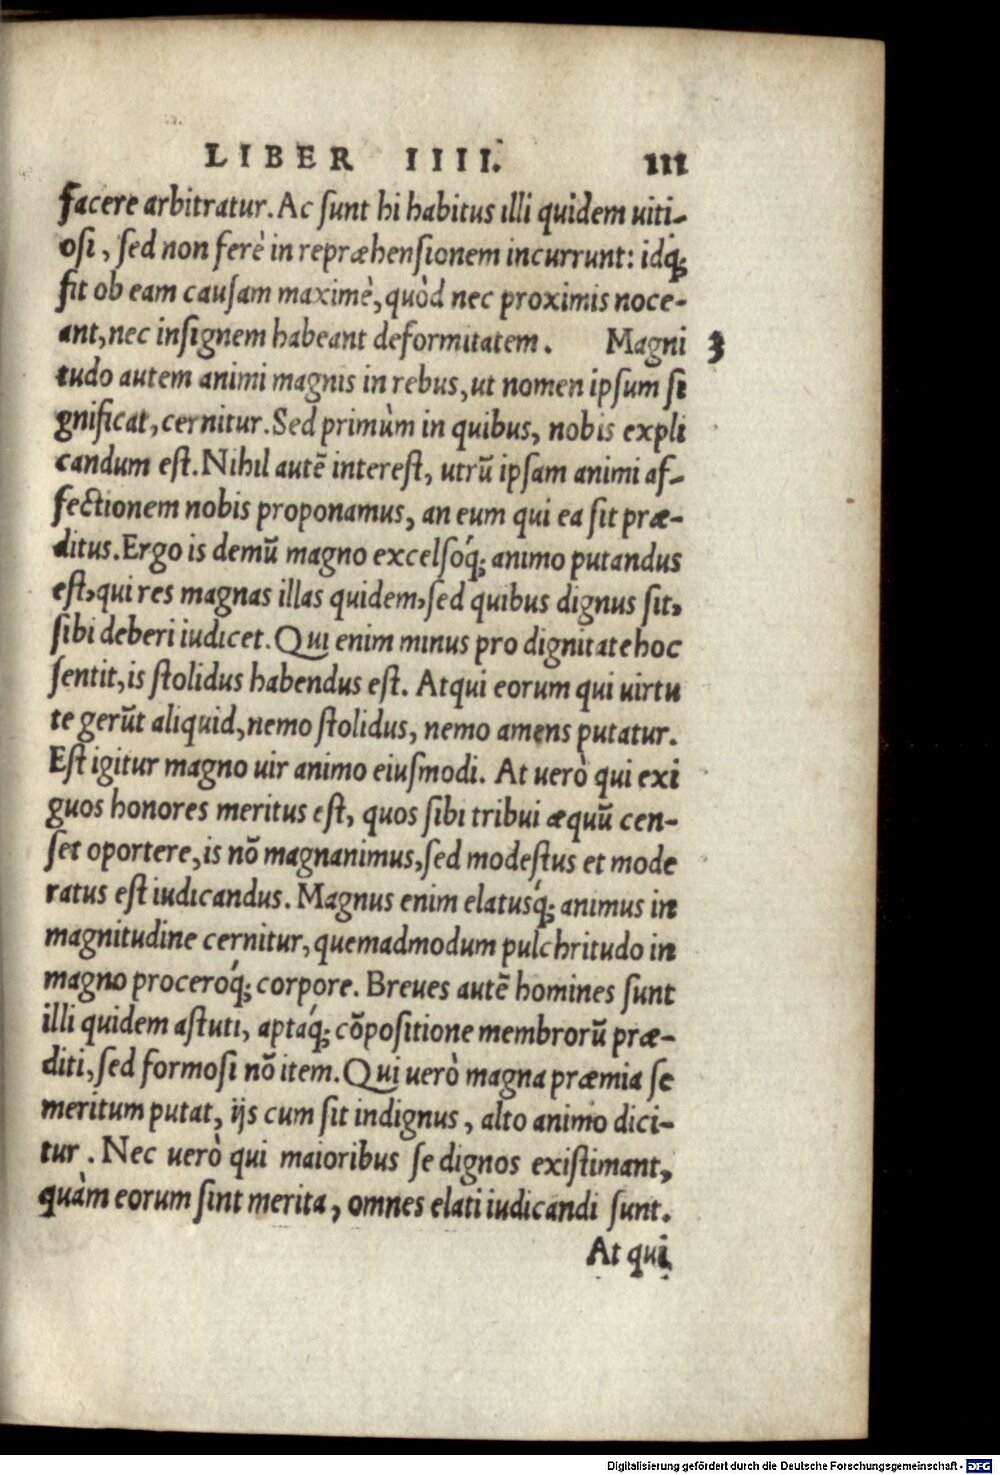 LIBER IIII. 111
facere arbitratur. Ac ſunt hi habitus illi quidem uiti-
oſi, ſed non ferè in repræhenſionem incurrunt: idq́;
fit ob eam cauſam maximè, quòd nec proximis noce-
ant, nec inſignem habeant deformitatem. Magni 3
tudo autem animi magnis in rebus, ut nomen ipſum ſi
gnificat, cernitur. Sed primùm in quibus, nobis expli
candum eſt. Nihil autẽ intereſt, utrũ ipſam animi af-
fectionem nobis proponamus, an eum qui ea ſit præ-
ditus. Ergo is demũ magno excelſoq́; animo putandus
eſt, qui res magnas illas quidem, ſed quibus dignus ſit,
ſibi deberi iudicet. Qui enim minus pro dignitate hoc
ſentit, is ſtolidus habendus eſt. Atqui eorum qui uirtu
te gerũt aliquid, nemo ſtolidus, nemo amens putatur.
Eſt igitur magno uir animo eiuſmodi. At uerò qui exi
guos honores meritus eſt, quos ſibi tribui æquũ cen-
ſet oportere, is nõ magnanimus, ſed modeſtus et mode
ratus eſt iudicandus. Magnus enim elatusq́; animus in
magnitudine cernitur, quemadmodum pulchritudo in
magno proceroq́; corpore. Breues autẽ homines ſunt
illi quidem aſtuti, aptaq́; cõpoſitione membrorũ præ-
diti, ſed formoſi nõ item. Qui uerò magna præmia ſe
meritum putat, ijs cum ſit indignus, alto animo dici-
tur. Nec uerò qui maioribus ſe dignos exiſtimant,
quàm eorum ſint merita, omnes elati iudicandi ſunt.
At qui
Digitalisierung gefördert durch die Deutsche Forschungsgemeinschaft - DFG